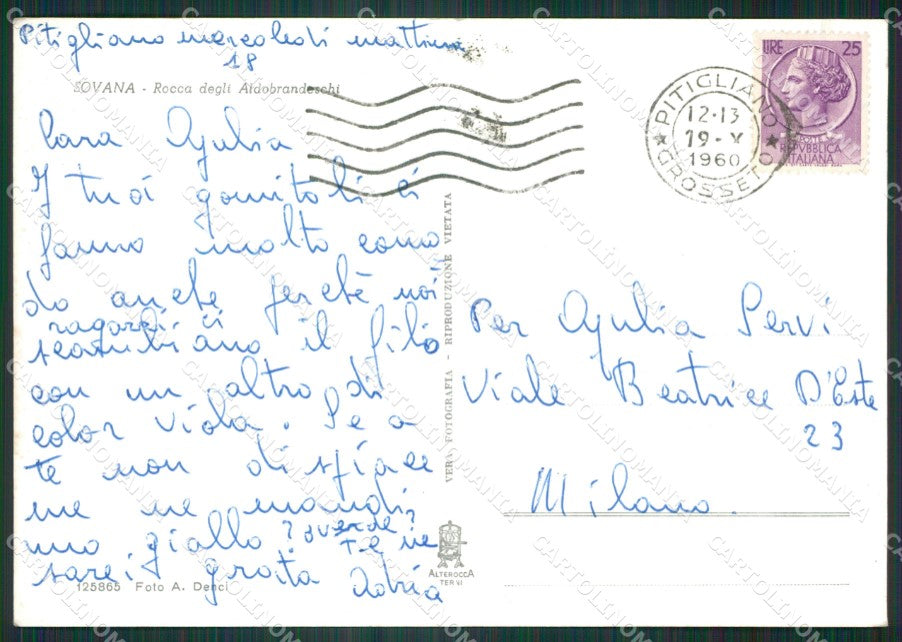 Pitigliano mercoledì mattina
18
SOVANA - Rocca degli Aldobrandeschi
Cara Agulia
I tuoi gomitoli ci
fanno molto como
do anche perchè noi
ragazzi ci
scambiano il filo
con un altro di
color viola. Se a
te non dispiace
me ne mandi
uno giallo? o verde?
Te ne
sarei grata
Adria
125865 Foto A. Denci
VERA FOTOGRAFIA - RIPRODUZIONE VIETATA
ALTEROCCA
TERNI
LIRE 25
REPUBBLICA
ITALIANA
PITIGLIANO
12-13
19-X
1960
GROSSETO
Per Agulia Servi
Viale Beatrice D'Este
23
Milano.
CARTOLINOMANIA